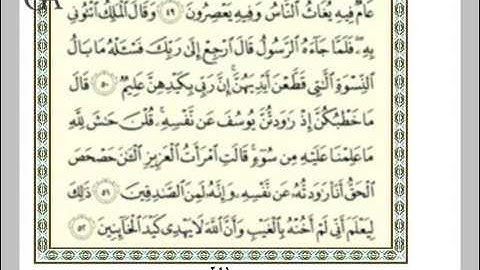 عَامٌ فِيهِ يُغَاثُ النَّاسُ وَفِيهِ يَعْصِرُونَ ٤٩ وَقَالَ الْمَلِكُ ائْتُونِي
بِهِ فَلَمَّا جَاءَهُ الرَّسُولُ قَالَ ارْجِعْ إِلَى رَبِّكَ فَسْـَٔلْهُ مَا بَالُ
النِّسْوَةِ الَّتِي قَطَّعْنَ أَيْدِيَهُنَّ إِنَّ رَبِّي بِكَيْدِهِنَّ عَلِيمٌ ٥٠ قَالَ
مَا خَطْبُكُنَّ إِذْ رَٰوَدتُّنَّ يُوسُفَ عَن نَّفْسِهِ قُلْنَ حَٰشَ لِلَّهِ
مَا عَلِمْنَا عَلَيْهِ مِن سُوءٍ قَالَتِ امْرَأَتُ الْعَزِيزِ الْـَٰٔنَ حَصْحَصَ
الْحَقُّ أَنَا رَٰوَدتُّهُ عَن نَّفْسِهِ وَإِنَّهُ لَمِنَ الصَّٰدِقِينَ ٥١ ذَٰلِكَ
لِيَعْلَمَ أَنِّي لَمْ أَخُنْهُ بِالْغَيْبِ وَأَنَّ اللَّهَ لَا يَهْدِي كَيْدَ الْخَائِنِينَ ٥٢